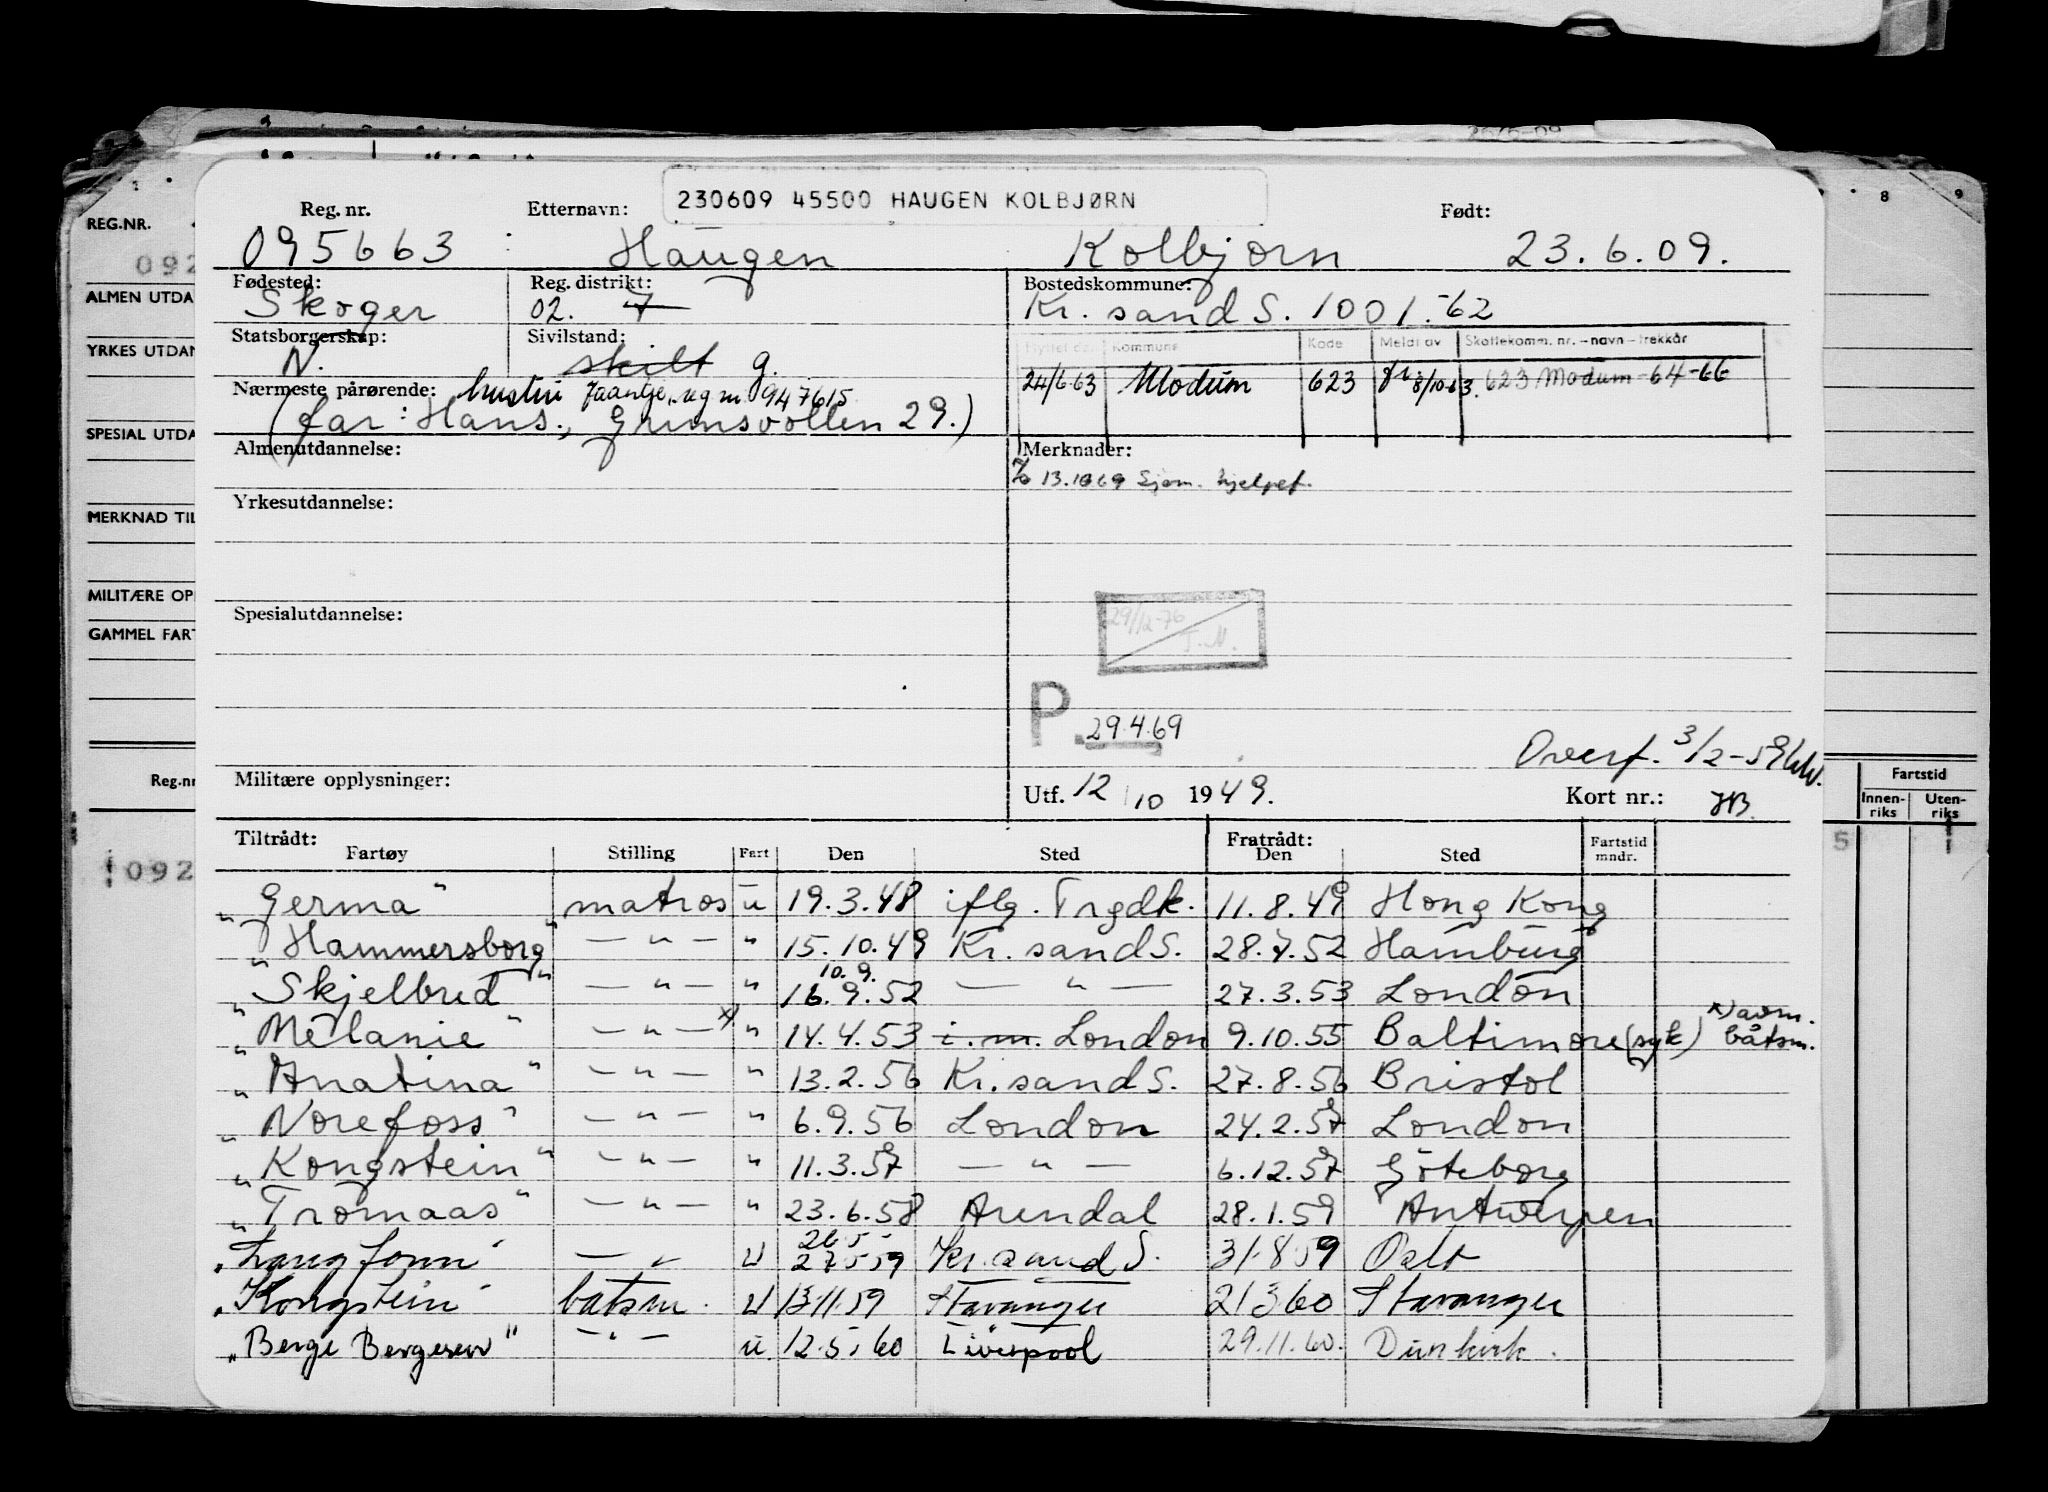 230609 45500 HAUGEN KOLBJØRN
Reg. nr. Etternavn: Født:
095663 Haugen Kolbjørn 23.6.09.
Fødested: Reg. distrikt: Bostedskommune:
Skoger 02. 7 Kr. sand S. 1001.-62
Statsborgerskap: Sivilstand:
N. skilt g.
Kommune Kode Meldt av Skattekomm. nr. – navn – trekkår
24/6-63 Modum 623 8/10-63. 623 Modum-64-66
Nærmeste pårørende: hustru Jaantje, reg nr. 947615
(far: Hans, Grimsvollen 29.)
Almenutdannelse: Merknader:
13.10 69 Sjøm. hjelpef.
Yrkesutdannelse:
Spesialutdannelse:
29/12-76
T.N.
P. 29.4.69
Overf. 3/2-59
Militære opplysninger: Utf. 12/10 1949. Kort nr.: HB.
Tiltrådt: Fratrådt:
Fartøy Stilling Fart Den Sted Den Sted Fartstid mndr.
„Germa" matros u 19.3.48 iflg. Trgdk. 11.8.49 Hong Kong
„Hammersborg" — " — " 15.10.49 Kr. sand S. 28.7.52 Hamburg
10.9.
„Skjelbred" — " — " 16.9.52 — " — 27.3.53 London
„Melanie" — " — x) " 14.4.53 i.m. London 9.10.55 Baltimore (syk) x) avm. båtsm.
„Anatina" — " — " 13.2.56 Kr. sand S. 27.8.56 Bristol
„Norefoss" — " — " 6.9.56 London 24.2.57 London
„Kongstein" — " — " 11.3.57 — " — 6.12.57 Göteborg
„Tromaas" — " — " 23.6.58 Arendal 28.1.59 Antwerpen
26.5.
„Langfonn" — " u 27.5.59 Kr. sand S. 31.8.59 Oslo
„Kongstein" båtsm. u 13.11.59 Stavanger 21.3.60 Stavanger
„Berge Bergesen" — " — u. 12.5.60 Liverpool 29.11.60. Dunkirk.
REG.NR.
092
ALMEN UTDA
YRKES UTDAN
SPESIAL UTDA
MERKNAD TIL
MILITÆRE OPP
GAMMEL FART
Reg.nr
092
8 9
Fartstid
Innen-riks Uten-riks
5 1